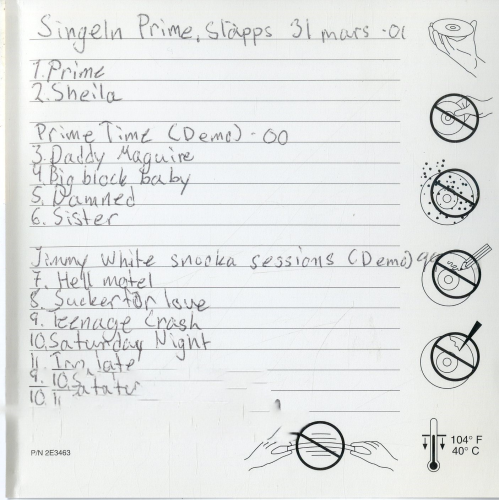 Singeln Prime, Släpps 31 mars -01
1. Prime
2. Sheila
Prime Time (Demo) - 00
3. Daddy Maguire
4. Big block baby
5. Damned
6. Sister
Jimmy White snooka sessions (Demo)
7. Hell motel
8. Sucker for love
9. Teenage Crash
10. Saturday Night
11. late
9. 10. S
10. 11
P/N 2E3463
104° F
40° C